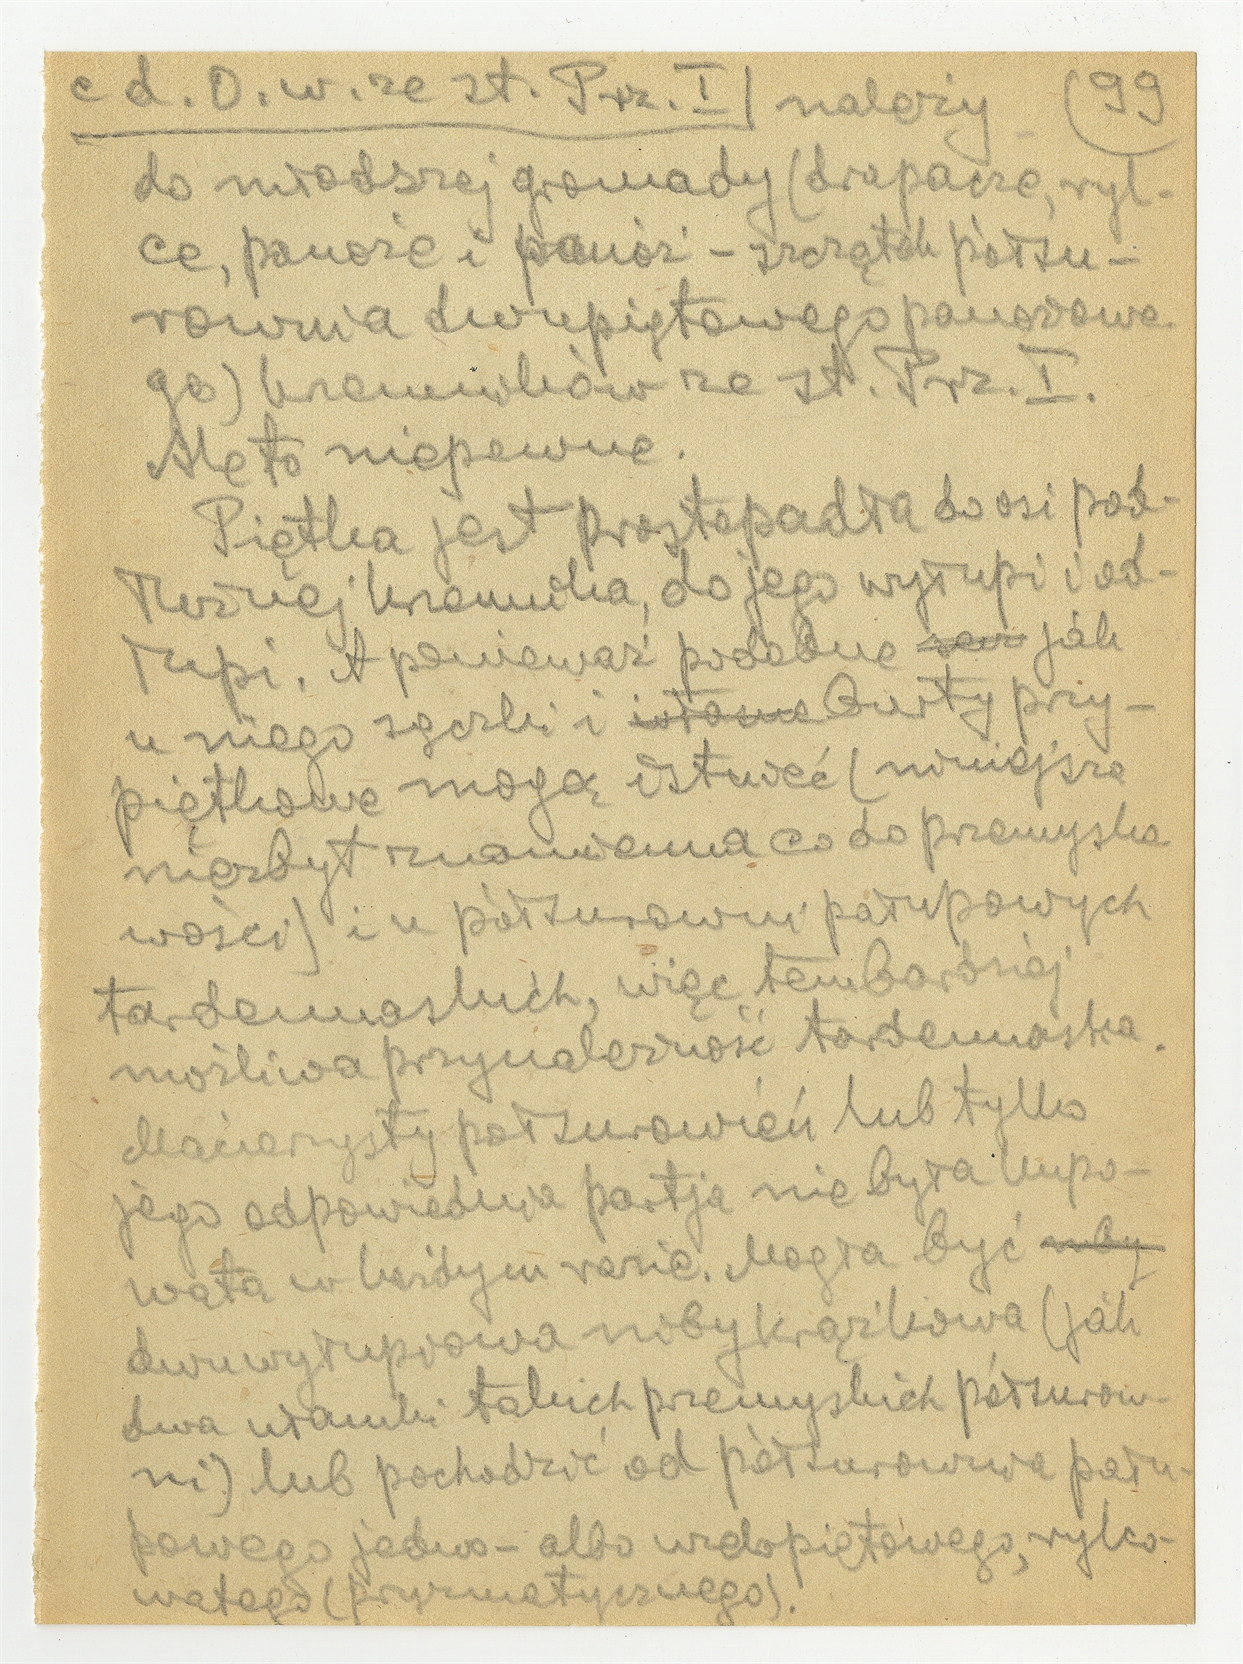 c d. O. w. ze st. Prz. I) należy (99
do młodszej gromady (drapacze, ryl-
ce, panoże i panóż - szczątek półsu-
rownia dwupiętowego panożowe-
go) krzemików ze st. Prz. I.
Ale to niepewne.
Piętka jest prostopadła do osi pod-
łużnej krzemika, do jego wyłupi i od-
łupi. A ponieważ podobne jak
u niego sęczki i burty przy-
piętkowe mogą istnieć (mniejsze
niezbyt znamienna co do przemysło-
wości) i u półsurowni połupowych
tardenuaskich, więc tembardziej
możliwa przynależność tardenuaska.
Macierzysty półsurowień lub tylko
jego odpowiednia partja nie była kupo-
wata w każdym razie. Mogła być
dwuwyłupiowa niby krążkowa (jak
dwa ułamki takich przemyskich półsurow-
ni) lub pochodzić od półsurownia połu-
powego jedno- albo wielopiętowego, rylco-
watego (pryzmatycznego).